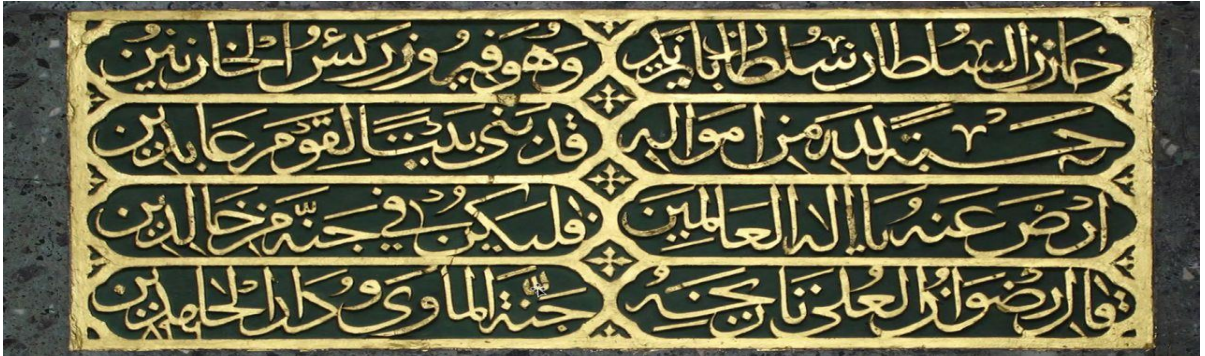 خازن السلطان سلطان بايزيد وهو فيروز رئيس الخازنين
حسبة لله من امواله قد بنى بيتا لقوم عابدين
ارض عنه يا اله العالمين فليكن في جنة من خالدين
قال رضوان العلى تاريخه جنة المأوى ودار الحامدين